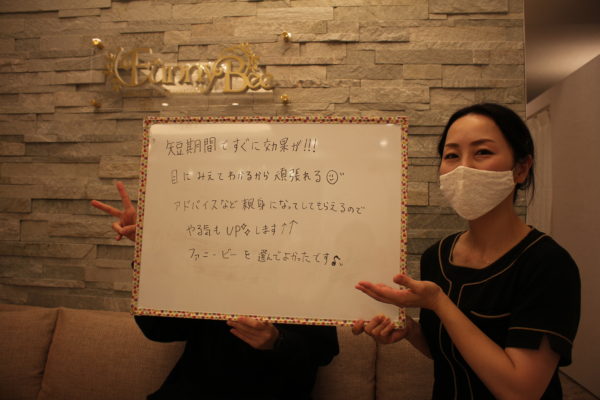 Funny Bee
短期間ですぐに効果が!!!
目にみえてわかるから頑張れる☺
アドバイスなど親身になってしてもらえるので
やる気もUPします↑↑
ファニービーを選んでよかったです♪